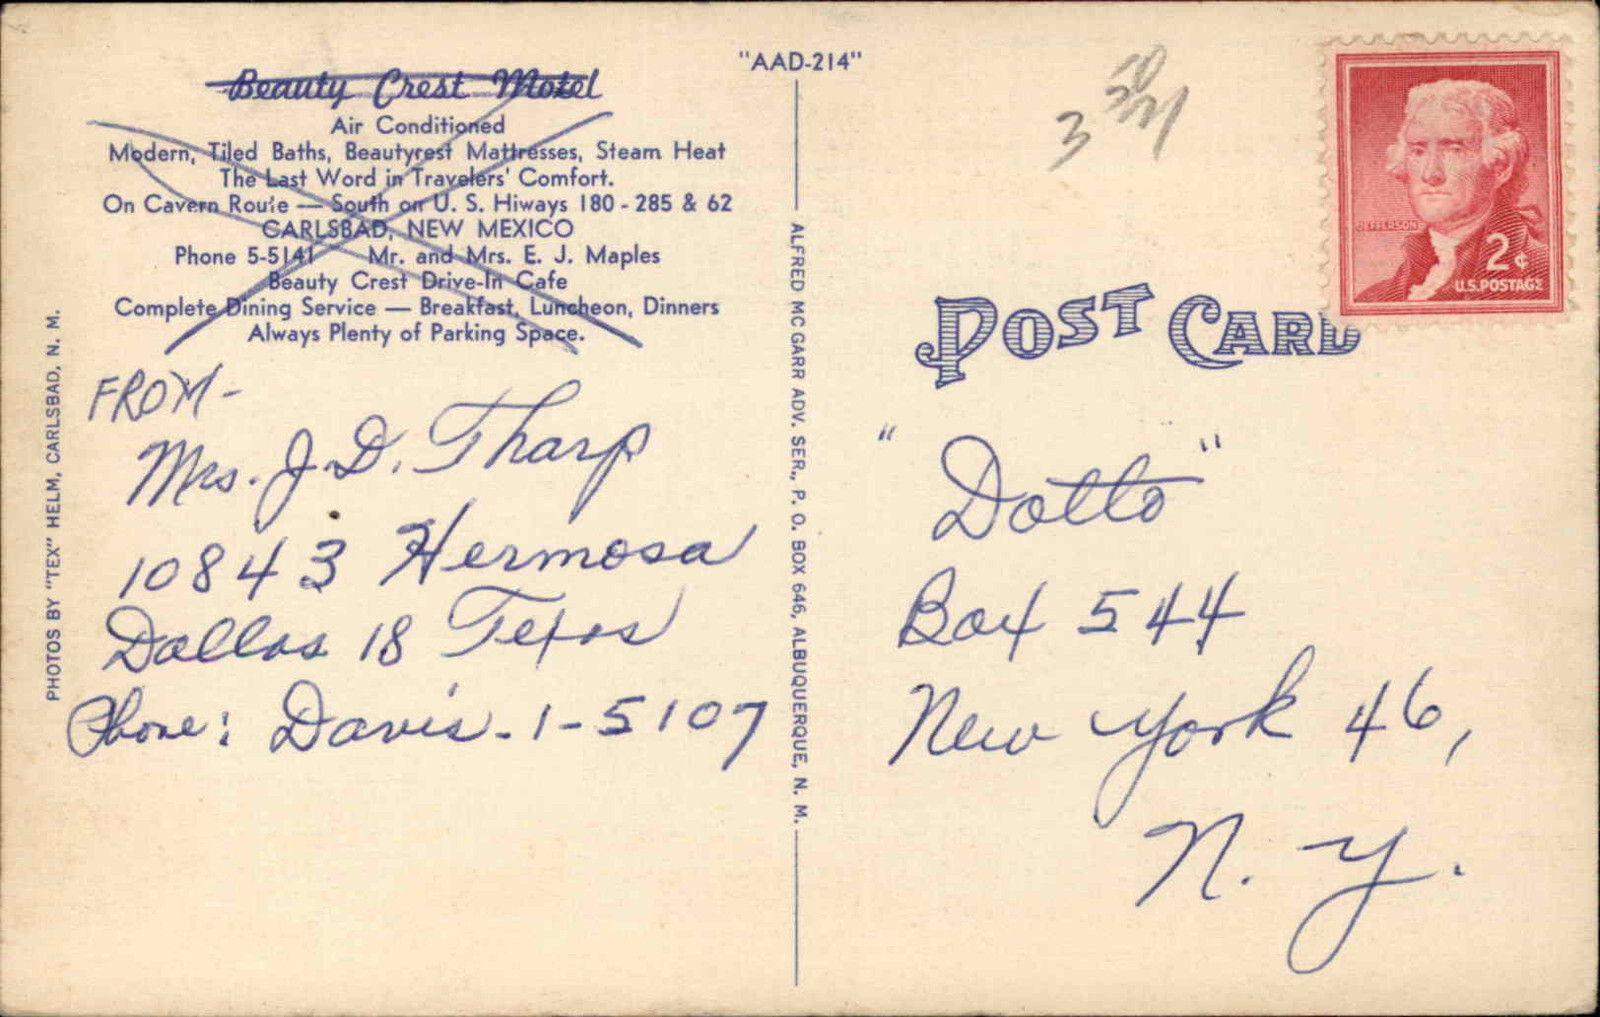 Beauty Crest Motel
Air Conditioned
Modern, Tiled Baths, Beautyrest Mattresses, Steam Heat
The Last Word in Travelers' Comfort.
On Cavern Route — South on U. S. Hiways 180 - 285 & 62
CARLSBAD, NEW MEXICO
Phone 5-5141 Mr. and Mrs. E. J. Maples
Beauty Crest Drive-In Cafe
Complete Dining Service — Breakfast, Luncheon, Dinners
Always Plenty of Parking Space.
PHOTOS BY "TEX" HELM, CARLSBAD, N. M.
FROM-
Mrs. J. D. Tharp
10843 Hermosa
Dallas 18 Texas
Phone: Davis-1-5107
"AAD-214"
ALFRED MC GARR ADV. SER., P. O. BOX 646, ALBUQUERQUE, N. M.
3
JEFFERSON
2¢
U.S. POSTAGE
POST CARD
"Dotto"
Box 544
New York 46,
N. Y.